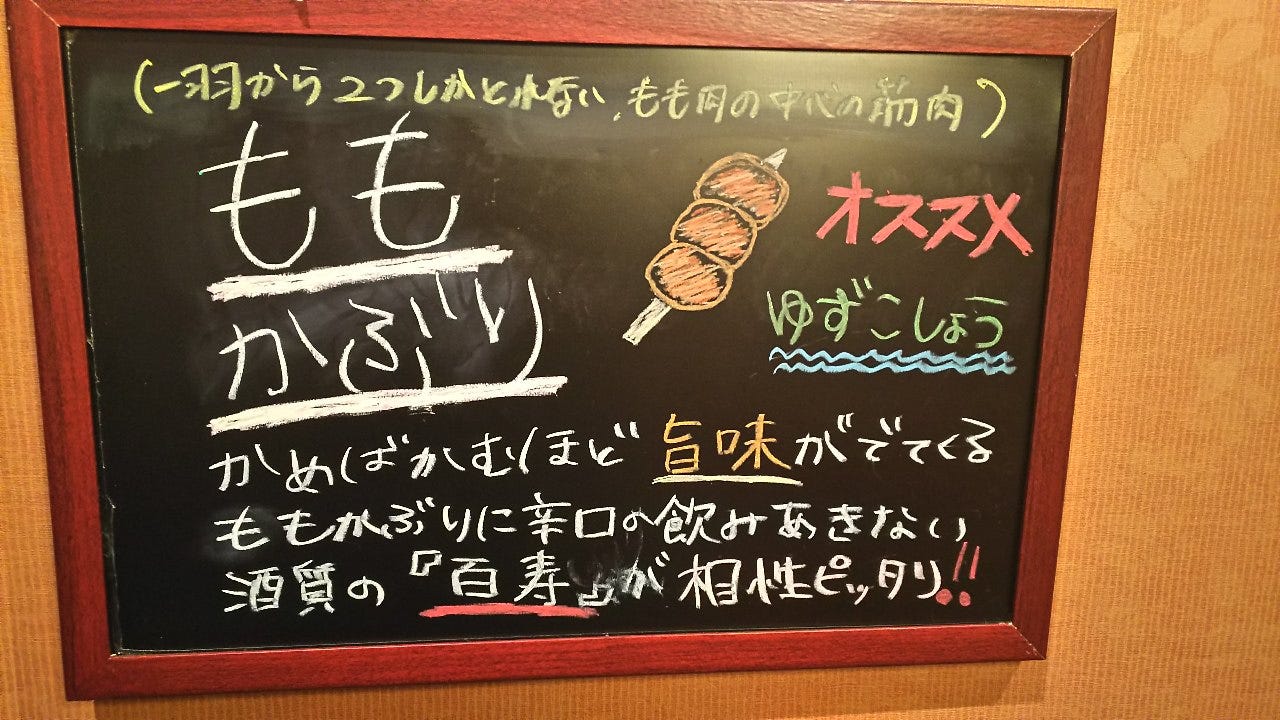 (一羽から2つしかとれない、もも肉の中心の筋肉)
もも
かぶり
オススメ
ゆずこしょう
かめばかむほど旨味がでてくる
ももかぶりに辛口の飲みあきない
酒質の『百寿』が相性ピッタリ!!